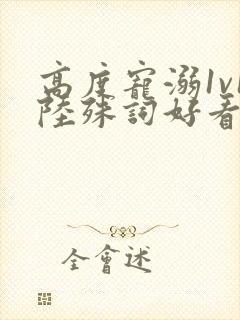 高度寵溺1v1
陸殊詞好看
全會述